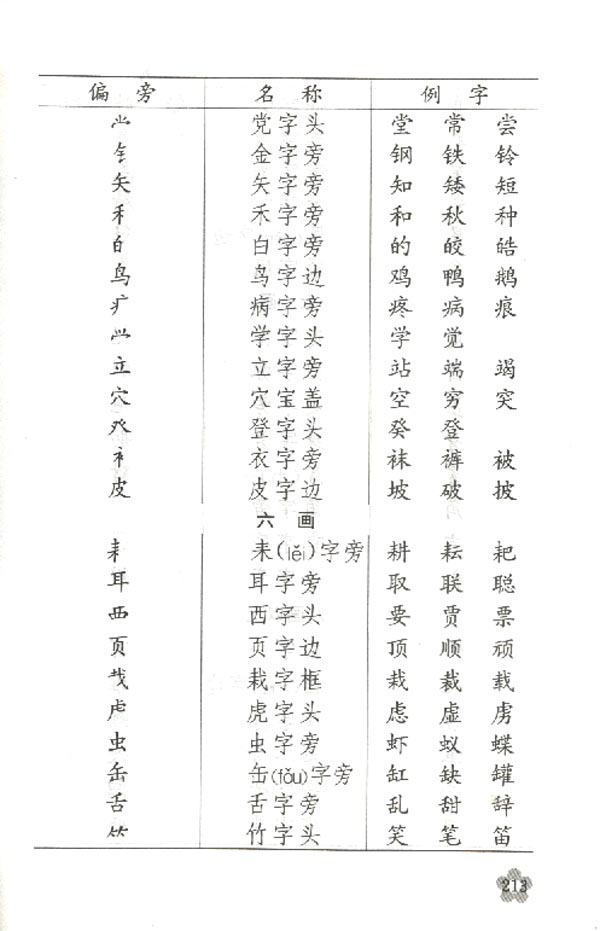 偏 旁 名 称 例 字
⺌冖 党字头 堂 常 尝
钅 金字旁 钢 铁 铃
矢 矢字旁 知 矮 短
禾 禾字旁 和 秋 种
白 白字旁 的 皎 皓
鸟 鸟字边 鸡 鸭 鹅
疒 病字旁 疼 病 痕
𰃮 学字头 学 觉
立 立字旁 站 端 竭
穴 穴宝盖 空 穷 突
癶 登字头 癸 登
衤 衣字旁 袜 裤 被
皮 皮字边 坡 破 披
六 画
耒 耒(lěi)字旁 耕 耘 耙
耳 耳字旁 取 联 聪
覀 西字头 要 贾 票
页 页字边 顶 顺 顽
𢦏 栽字框 栽 裁 载
虍 虎字头 虑 虚 虏
虫 虫字旁 虾 蚁 蝶
缶 缶(fǒu)字旁 缸 缺 罐
舌 舌字旁 乱 甜 辞
⺮ 竹字头 笑 笔 笛
213